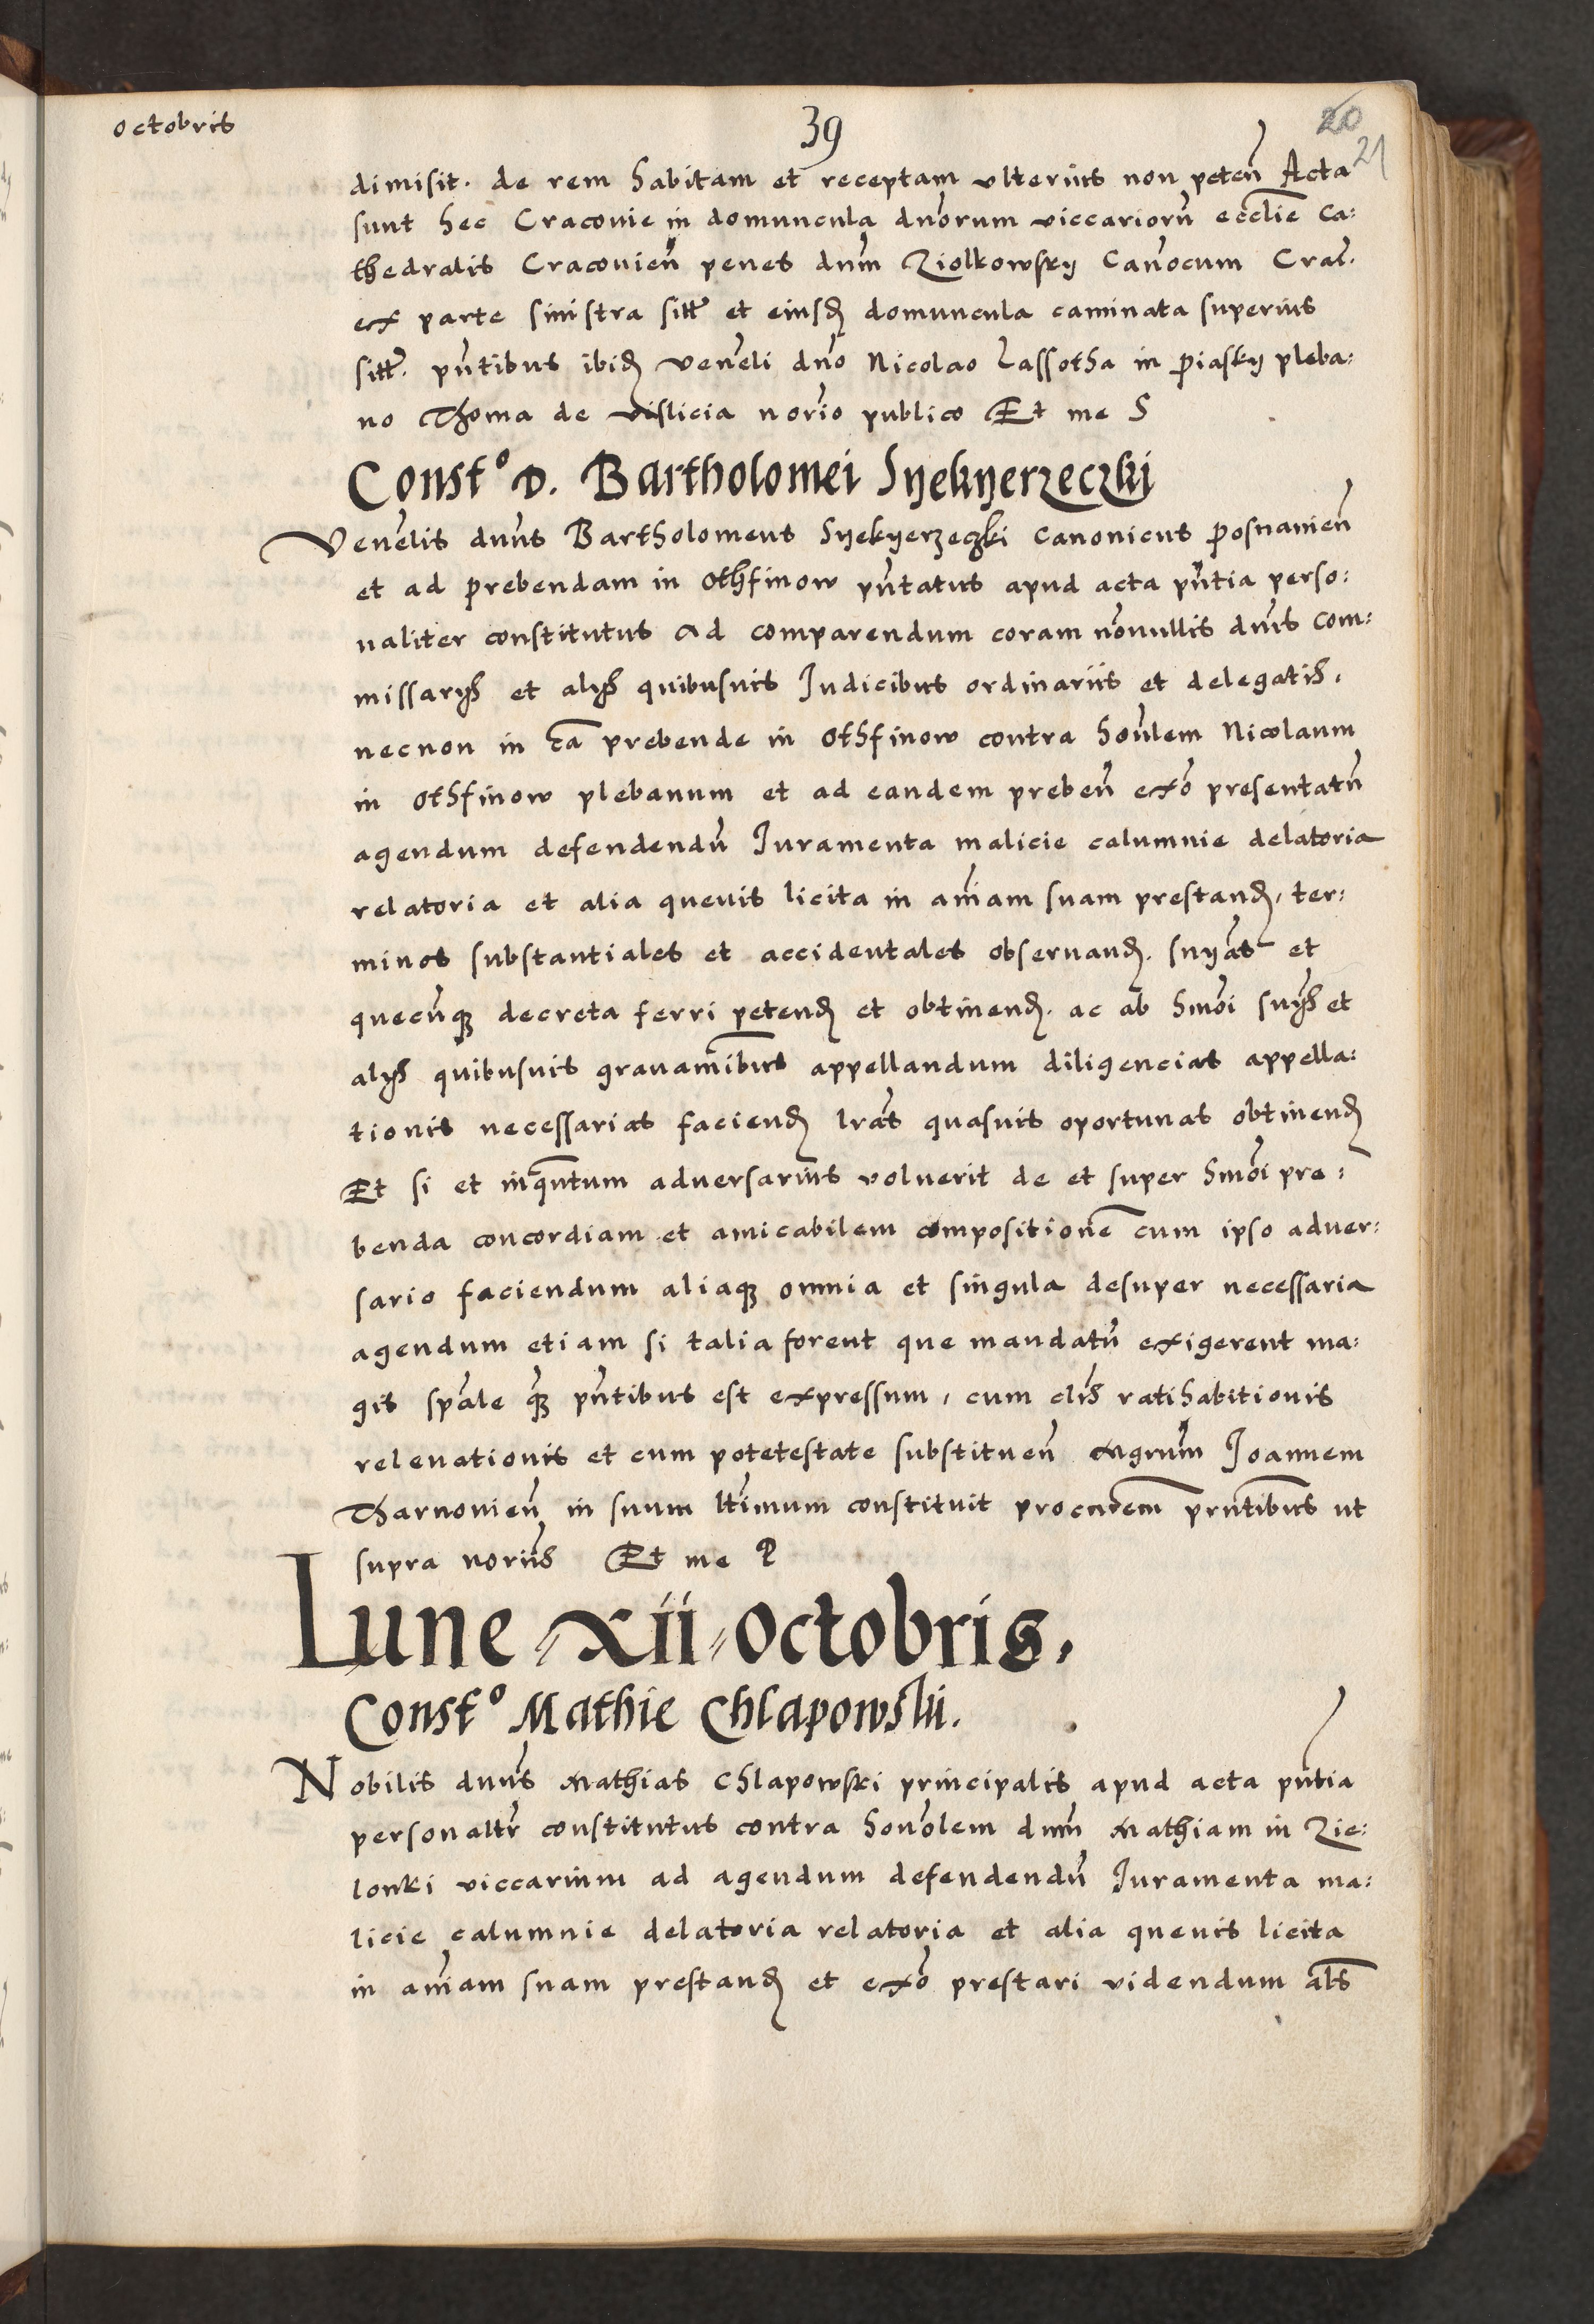 octobris
39
20
21
dimisit. de rem habitam et receptam vlterius non peteñ Acta
sunt hec Cracouie in domuncula dnorum viccariorũ ecclie Ca:
thedralis Cracouieñ penes dnm Ziolkowsky Canocum Crac.
ex parte sinistra sitt et eiusd domuncula caminata superius
sitt. pñtibus ibid veneli dno Nicolao Lassotha in piasky pleba:
no Thoma de vislicia norio publico Et me S
Const° D. Bartholomei Syekyerzeczki
Venelis dnus Bartholomeus Syekyerzeczki canonicus posnanieñ
et ad prebendam in othfinow pñtatus apud acta pñtia perso:
naliter constitutus ad comparendum coram nonullis dnis com:
missarys et alys quibusuis Iudicibus ordinariis et delegatis,
necnon in ca prebende in othfinow contra honlem Nicolaum
in othfinow plebanum et ad eandem prebeñ exo presentatũ
agendum defendendũ Iuramenta malicie calumnie delatoria
relatoria et alia queuis licita in aniam suam prestand, ter:
minos substantiales et accidentales obseruand. snyas et
quecũq decreta ferri petend et obtinend. ac ab hmoi snys et
alys quibusuis grauaminibus appellandum diligencias appella:
tionis necessarias faciend lras quasuis oportunas obtinend
Et si et inquntum adversarius voluerit de et super hmoi pre:
benda concordiam et amicabilem compositione cum ipso adver:
sario faciendum aliaq omnia et singula desuper necessaria
agendum etiam si talia forent que mandatũ exigerent ma:
gis spale q pñtibus est expressum, cum clis ratihabitionis
releuationis et cum potetestate substitueñ Mgrum Ioannem
Tharnouieñ in suum ltimum constituit procurem prntibus ut
supra noriis Et me P
Lune xii octobris.
Const° Mathie Chlapowski.
Nobilis dnus Mathias Chlapowski principalis apud acta pñtia
personaltr constitutus contra honolem dnm Mathiam in Zie:
lonki viccarium ad agendum defendendũ Iuramenta ma:
licie calumnie delatoria relatoria et alia queuis licita
in aniam suam prestand et exo prestari videndum als